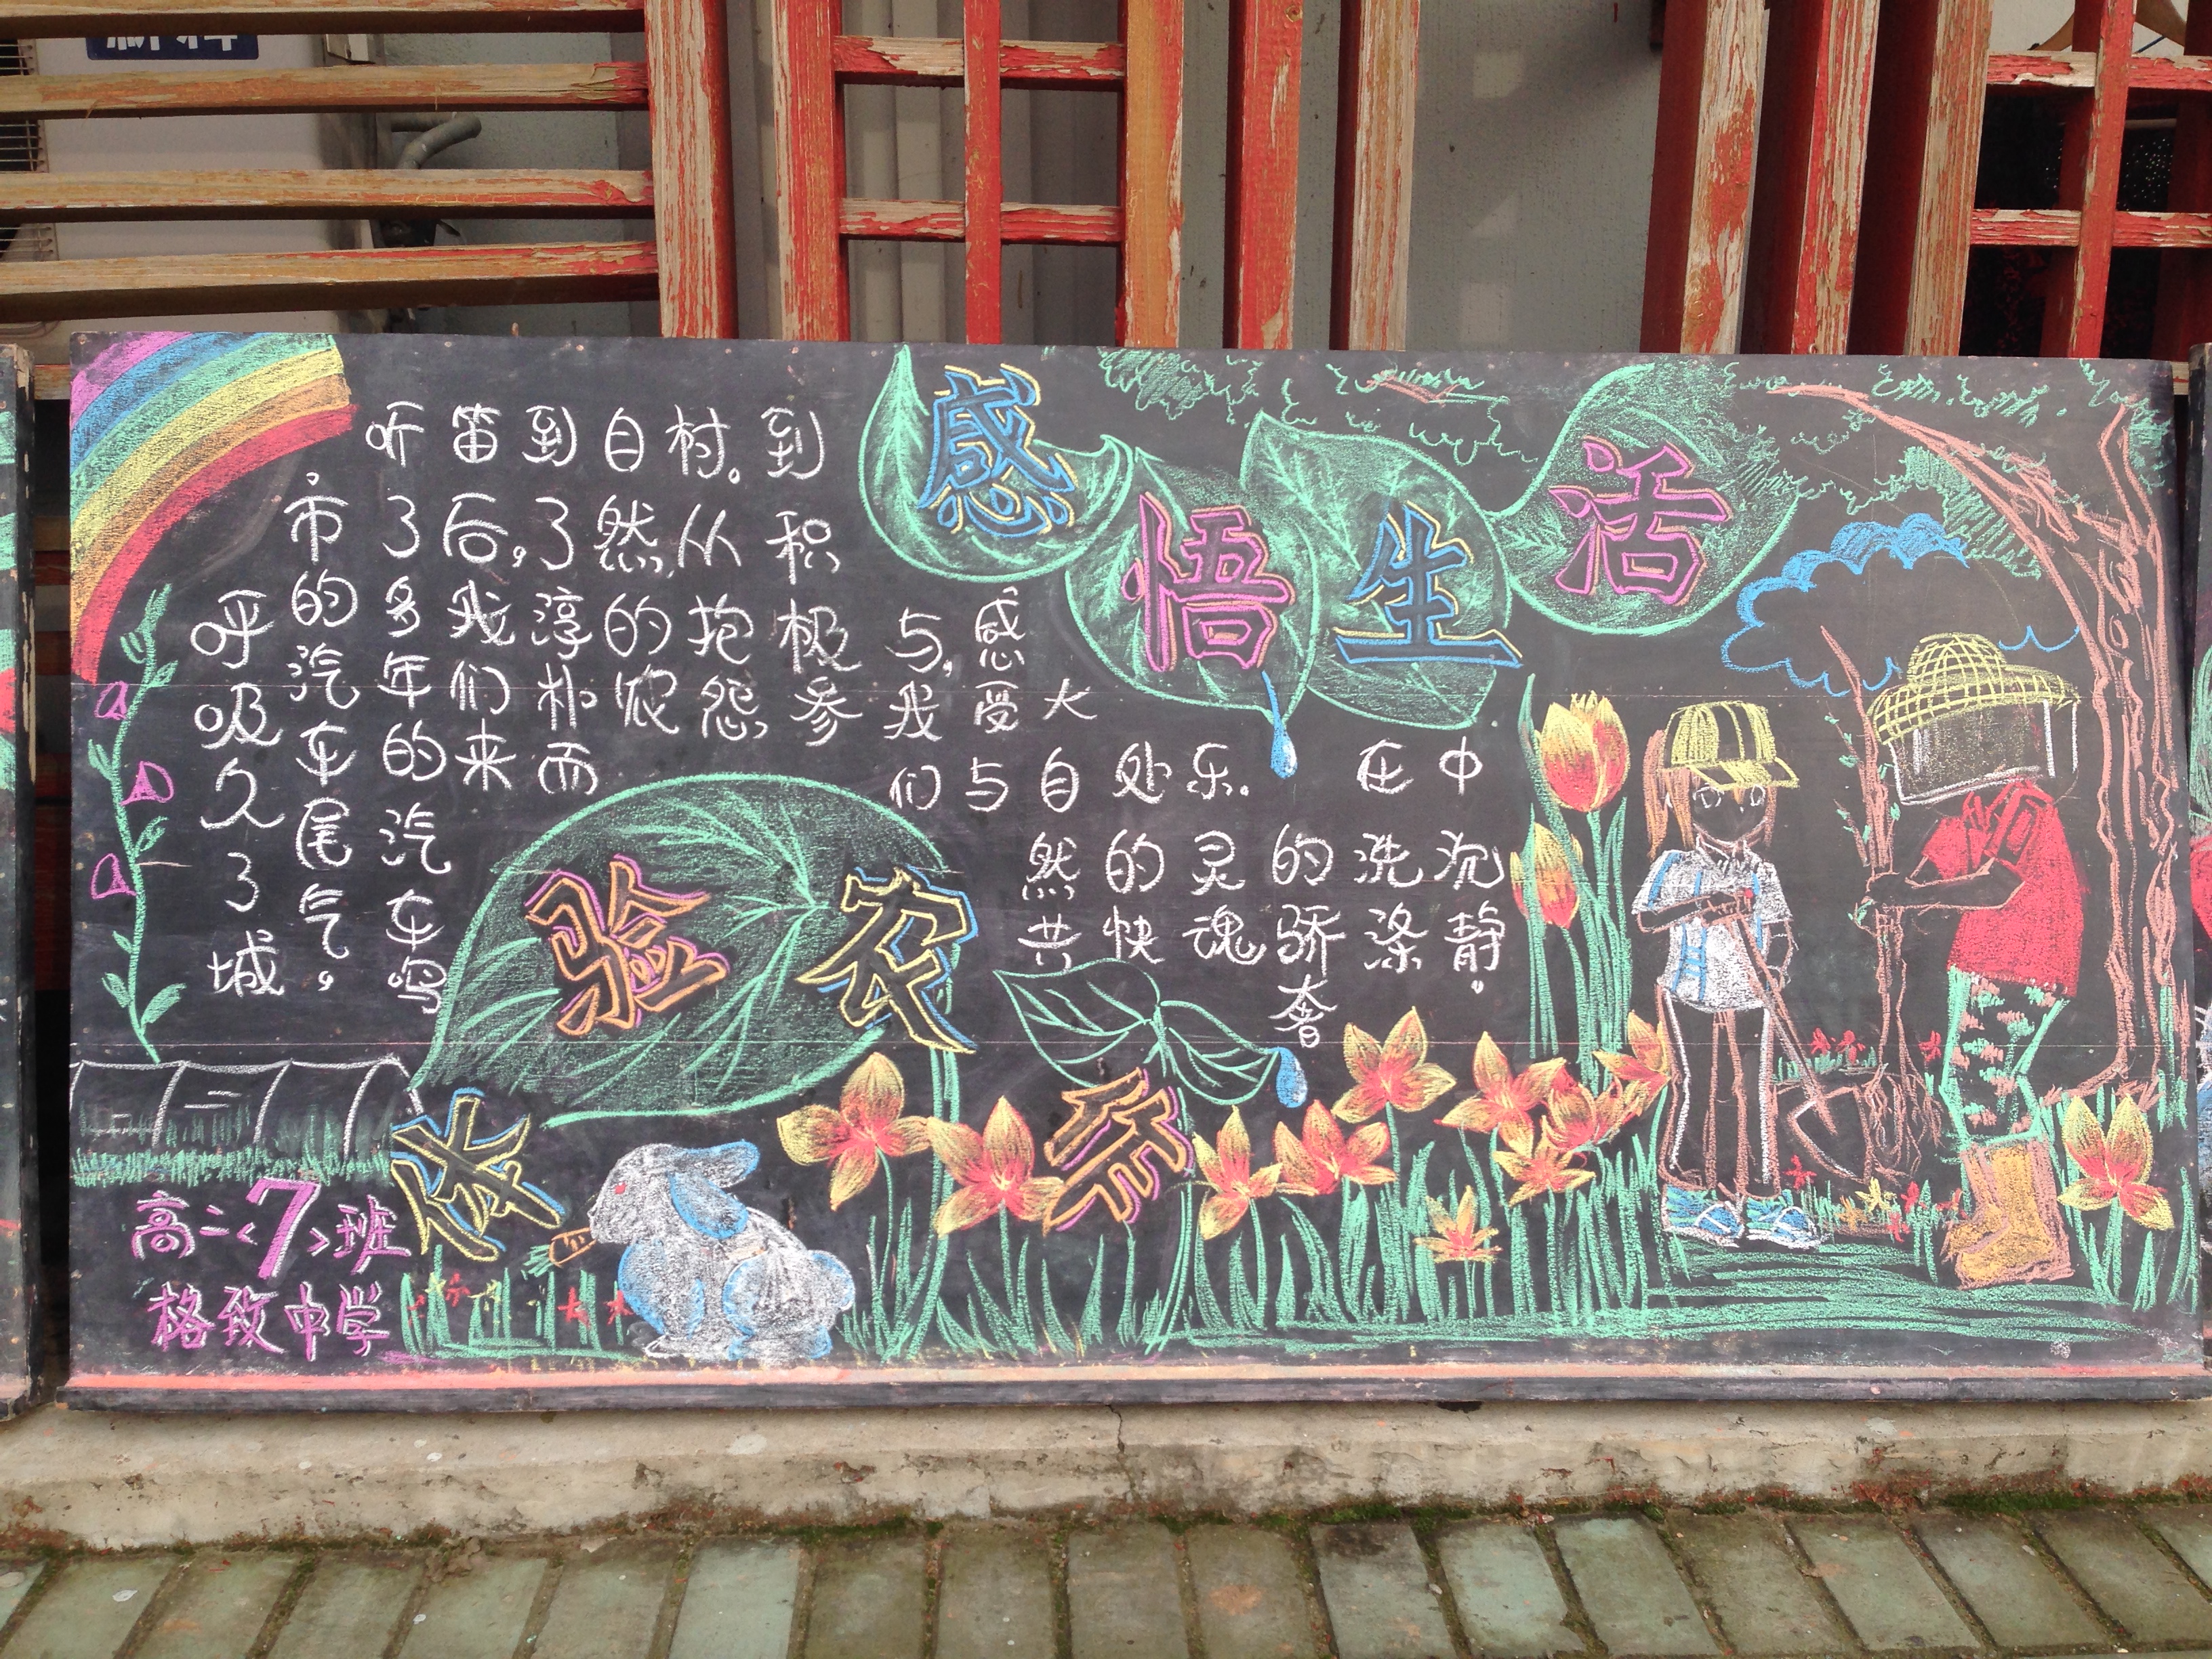 感悟生活
呼吸久了城
市的汽车尾气，
听了多年的汽车鸣
笛后，我们来
到了淳朴而
自然的农
村。从抱怨
到积极参
与，我们
感受与
大自然共
处的快
乐。灵魂
的骄奢
在洗涤
中沉静。
体验农
高二<7>班
格致中学